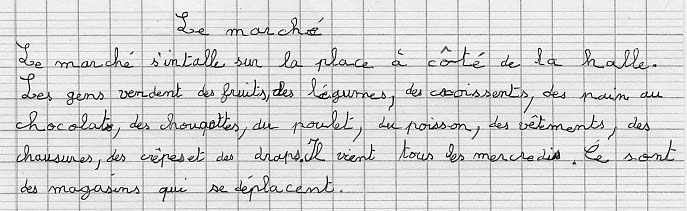 Le marché
Le marché s'intalle sur la place à côté de la halle.
Les gens vendent des fruits, des légumes, des croissents, des pain au
chocolats, des chougettes, du poulet, du poisson, des vêtements, des
chausures, des crêpes et des draps. Il vient tous les mercredis. Ce sont
des magasins qui se déplacent.